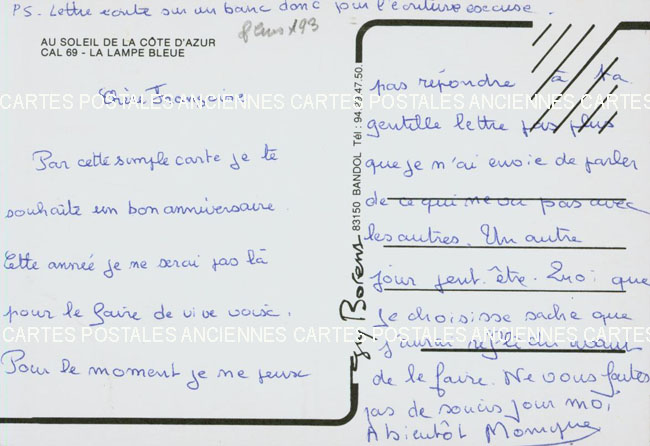 PS. Lettre écrite sur un banc donc pour l'écriture excuse.
AU SOLEIL DE LA CÔTE D'AZUR
CAL 69 - LA LAMPE BLEUE
Françoise
Par cette simple carte je te
souhaite un bon anniversaire.
Cette année je ne serai pas là
pour le faire de vive voix.
Pour le moment je ne peux
83150 BANDOL Tél : 94.29.47.50.
pas répondre à ta
gentille lettre pas plus
que je n'ai envie de parler
de ce qui ne va pas avec
les autres. Un autre
jour peut-être. Quoi que
je choisisse sache que
j'aurai réfléchi avant
de le faire. Ne vous faites
pas de soucis pour moi
A bientôt Monique
CARTES POSTALES ANCIENNES CARTES POSTALES ANCIENNES CARTES POSTALES ANCIENNES
CARTES POSTALES ANCIENNES CARTES POSTALES ANCIENNES CARTES POSTALES ANCIENNES